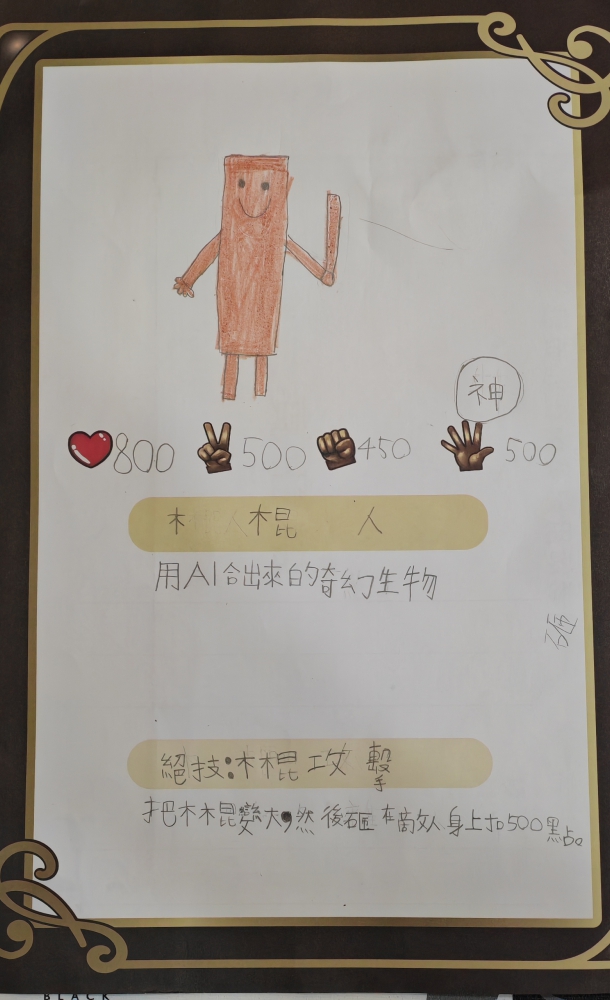 神
800 500 450 500
木棍人
用AI合出來的奇幻生物
砸
絕技:木棍攻擊
把木棍變大,然後砸在敵人身上扣500點。
BLACK